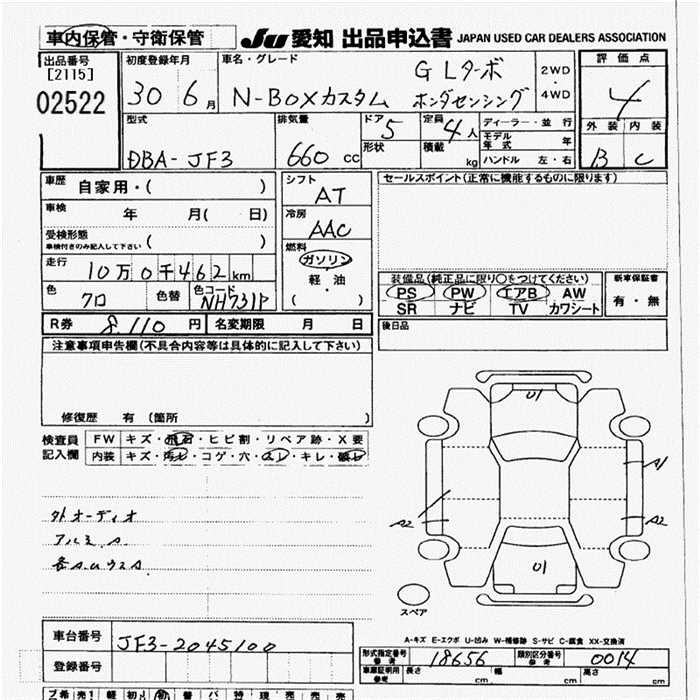 車内保管・守衛保管 JU 愛知 出品申込書 JAPAN USED CAR DEALERS ASSOCIATION
出品番号 初度登録年月 車名・グレード 評価点
[2115] GLターボ 2WD
02522 30 6月 N-BOXカスタム ホンダセンシング 4WD 4
型式 排気量 ドア 5 定員 4人 ディーラー・並行 外装 内装
形状 積載 kg モデル年式 年
DBA-JF3 660 cc ハンドル 左・右 B C
車歴 自家用・( ) シフト セールスポイント(正常に機能するものに限ります)
AT
車検 年 月( 日) 冷房
AAC
受検形態 ( )
車検付きのみ記入して下さい
燃料
走行 ガソリン
10万0千462km 軽油 装備品(純正品に限り○をつけてください) 新車保証書
色 クロ 色替 色コード NH731P ( ) PS PW エアB AW 有・無
SR ナビ TV カワシート
R券 8110円 名変期限 月 日 後日品
注意事項申告欄(不具合内容等は具体的に記入して下さい)
修復歴 有 (箇所 )
検査員 FW キズ・飛石・ヒビ割・リペア跡・X要
記入欄 内装 キズ・汚レ・コゲ・穴・スレ・キレ・破レ
U1
A1
A2 A2
外オーディオ
アルミA
各A.UウスA
U1
スペア
車台番号 JF3-2045100 A-キズ E-エクボ U-凹み W-補修跡 S-サビ C-腐食 XX-交換済
登録番号 形式指定番号 参考 18656 類別区分番号 参考 0014
車庫証明用 参考 長さ cm 幅 cm 高さ cm